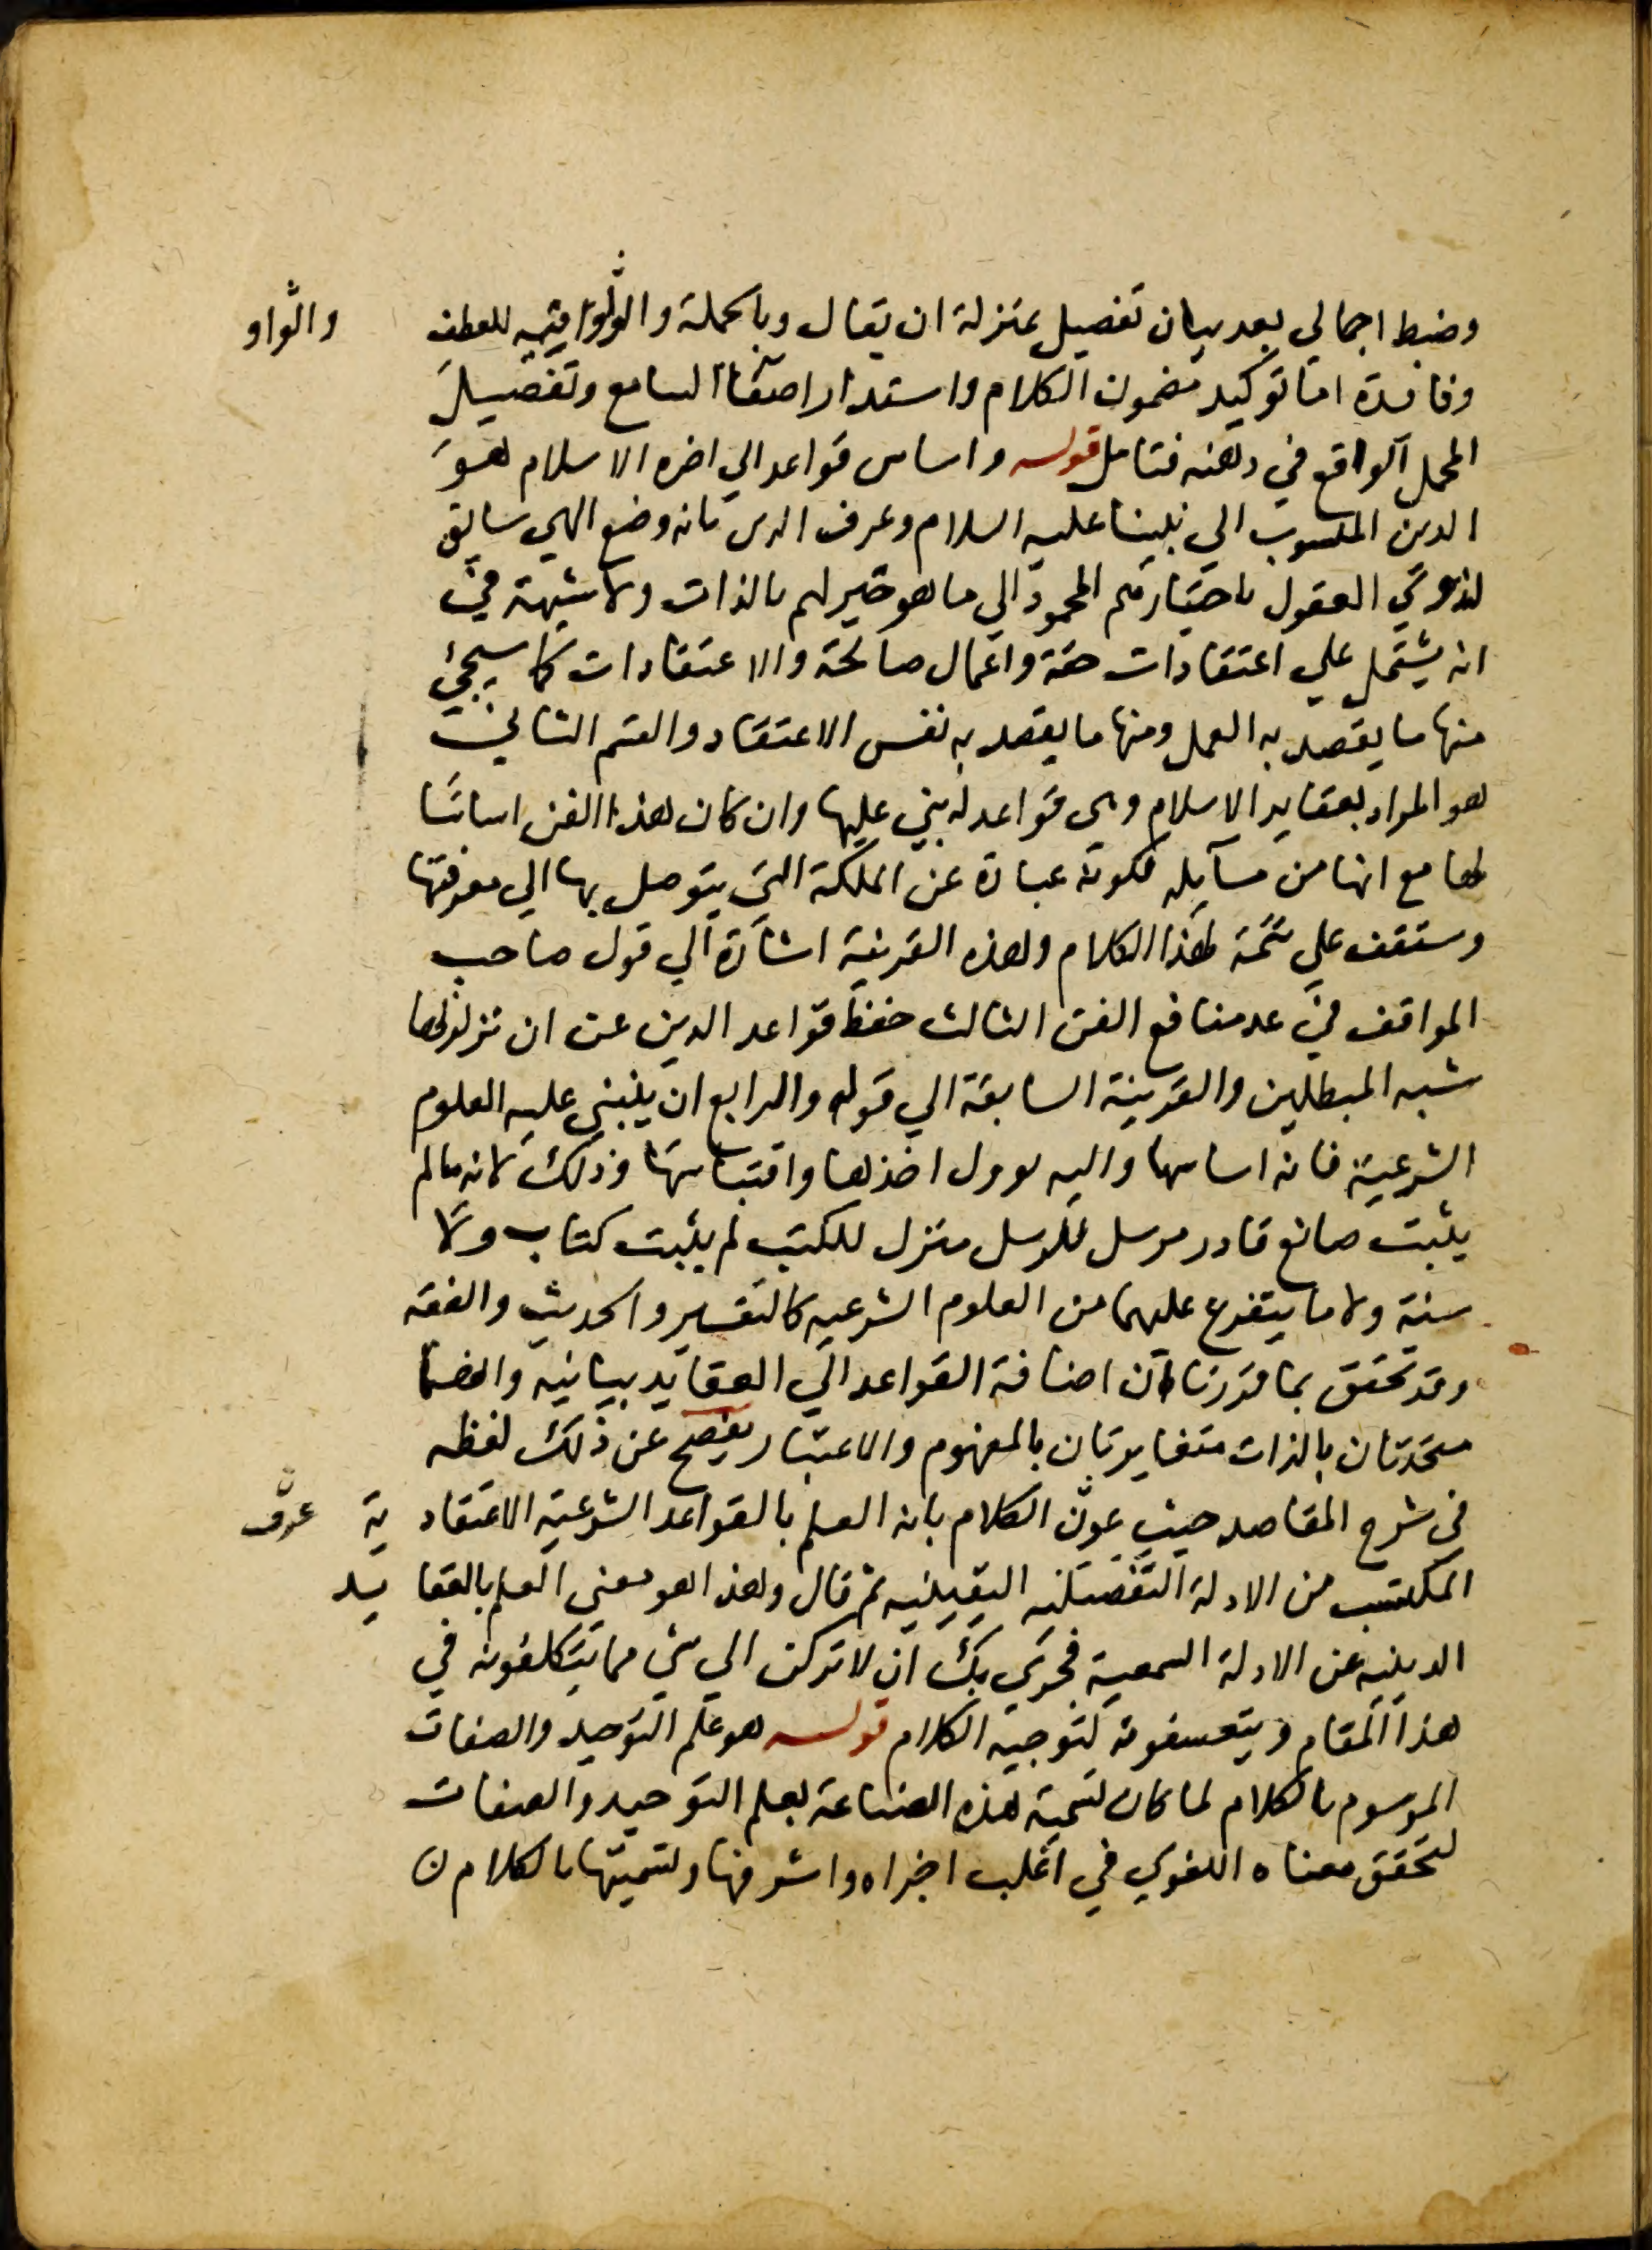 وضبط اجمالي بعد بيان تفصيل بمنزلة ان يقال وبالجملة والواو فيه للعطف
والواو
وفائدة اما توكيد مضمون الكلام واستدار اصغاا السامع وتفصيل
المجمل الواقع في ذهنه فتامل قوله واساس قواعد الي اخره الاسلام هو
الدين المنسوب الي نبينا عليه السلام وعرف الدين بانه وضع الهي سايق
لذوي العقول باختيارهم المحمود الي ما هو خير لهم بالذات ولا شبهة في
انه يشتمل علي اعتقادات حقة واعمال صالحة والاعتقادات كما سيجئ
منها ما يقصد به العمل ومنها ما يقصد به نفس الاعتقاد والقسم الثاني
هو المراد بعقايد الاسلام وهي قواعد له بني عليها وان كان هذا الفن اساسا
لها مع انها من مسايله لكونه عبارة عن الملكة التي يتوصل بها الي معرفتها
وستقف علي تتمة لهذا الكلام وهذه القرينة اشارة الي قول صاحب
المواقف في عد منافع الفن الثالث حفظ قواعد الدين عن ان تزلزلها
شبه المبطلين والقرينة السابقة الي قوله والرابع ان يبني عليه العلوم
الشرعية فانه اساسها واليه يوول اخذها واقتباسها وذلك لانه ما لم
يثبت صانع قادر مرسل للرسل منزل للكتب لم يثبت كتاب ولا
سنة ولا ما يتفرع عليهما من العلوم الشرعيه كالتفسير والحديث والفقه
وقد تحقق بما قررنا ان اضافة القواعد الي العقايد بيانية وانهما
متحدتان بالذات متغايرتان بالمفهوم والاعتبار يفصح عن ذلك لفظه
في شرح المقاصد حيث عرف الكلام بانه العلم بالقواعد الشرعية الاعتقادية
عرف
المكتسب من الادلة التفصيليه اليقينيه ثم قال وهذا هو معني العلم بالعقايد
الدينيه عن الادلة السمعية فحري بك ان لا تركن الي شي مما يتكلفونه في
هذا المقام ويتعسفونه لتوجيه الكلام قوله هو علم التوحيد والصفات
الموسوم بالكلام لما كان تسمية هذه الصناعة بعلم التوحيد والصفات
لتحقق معناه اللغوي في اغلب اجزاه واشرفها وتسميتها بالكلام